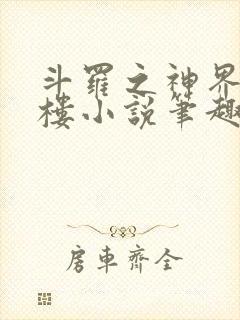 斗羅之神界
樓小說筆趣
房車齊全